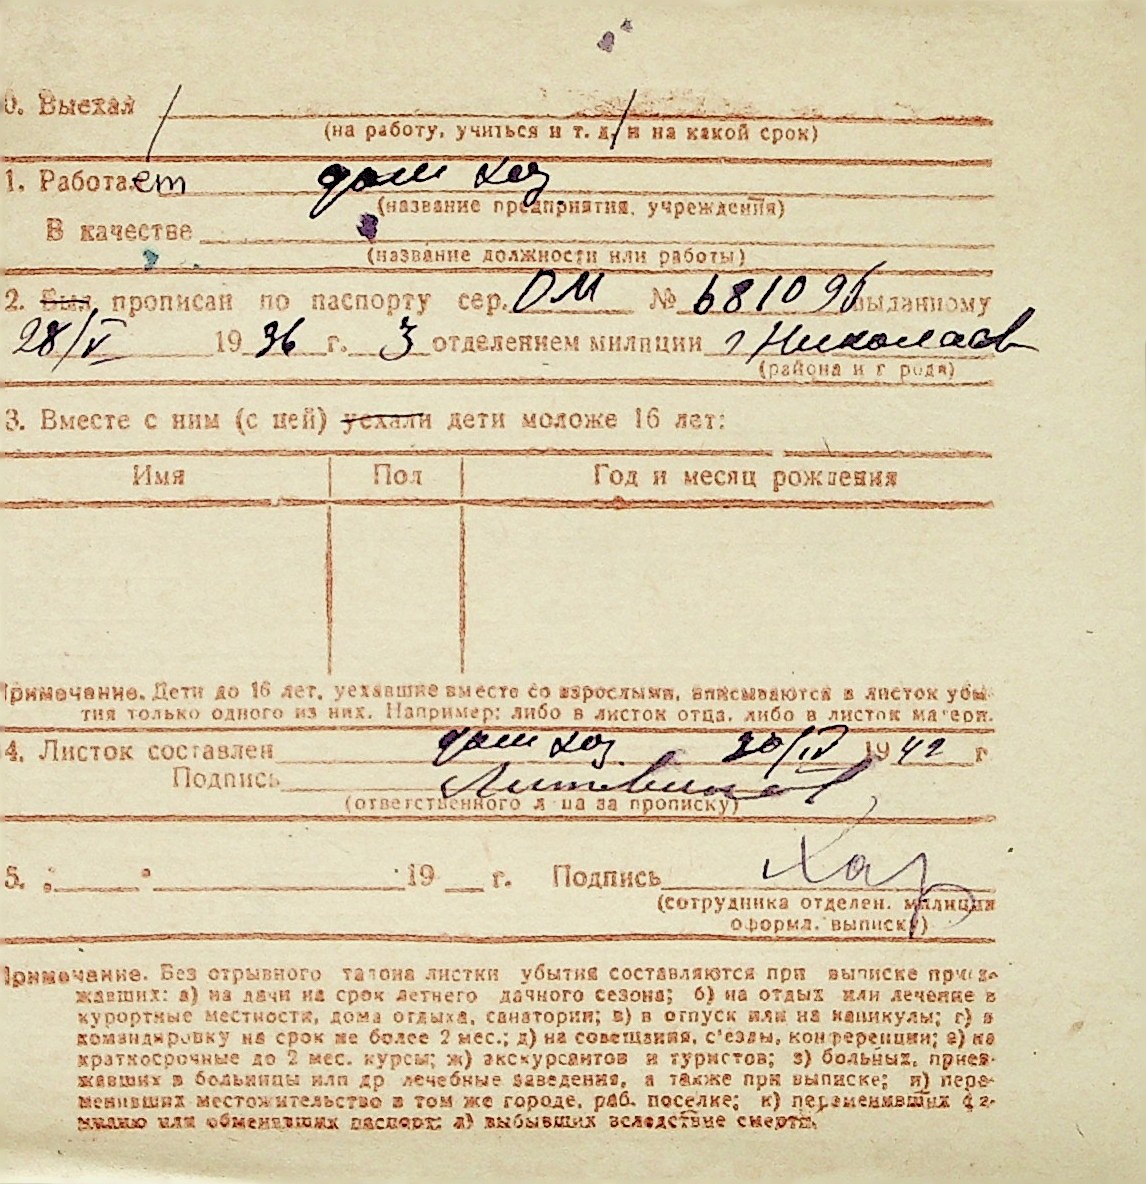 0. Выехал
(на работу, учиться и т. д. и на какой срок)
1. Работает дом хоз
(название предприятия, учреждения)
В качестве
(название должности или работы)
2. Был прописан по паспорту сер. ОМ № 681096 выданному
28/V 1936 г. 3 отделением милиции г Николаев
(района и г рода)
3. Вместе с ним (с ней) уехали дети моложе 16 лет:
Имя Пол Год и месяц рождения
Примечание. Дети до 16 лет, уехавшие вместе со взрослыми, вписываются в листок убы-
тия только одного из них. Например: либо в листок отца, либо в листок матери.
4. Листок составлен дом хоз 30/IV 1942 г
Подпись Литвинов
(ответственного л ца за прописку)
5. 19 г. Подпись Хар
(сотрудника отделен. милиции
оформл. выписку)
Примечание. Без отрывного талона листки убытия составляются при выписке приез-
жавших: а) на дачи на срок летнего дачного сезона; б) на отдых или лечение в
курортные местности, дома отдыха, санатории; в) в отпуск или на каникулы; г) в
командировку на срок не более 2 мес.; д) на совещания, с'езды, конференции; е) на
краткосрочные до 2 мес. курсы; ж) экскурсантов и туристов; з) больных, приез-
жавших в больницы или др лечебные заведения, а также при выписке; и) пере-
менивших местожительство в том же городе, раб. поселке; к) переменивших фа-
милию или обменявших паспорт; л) выбывших вследствие смерти.